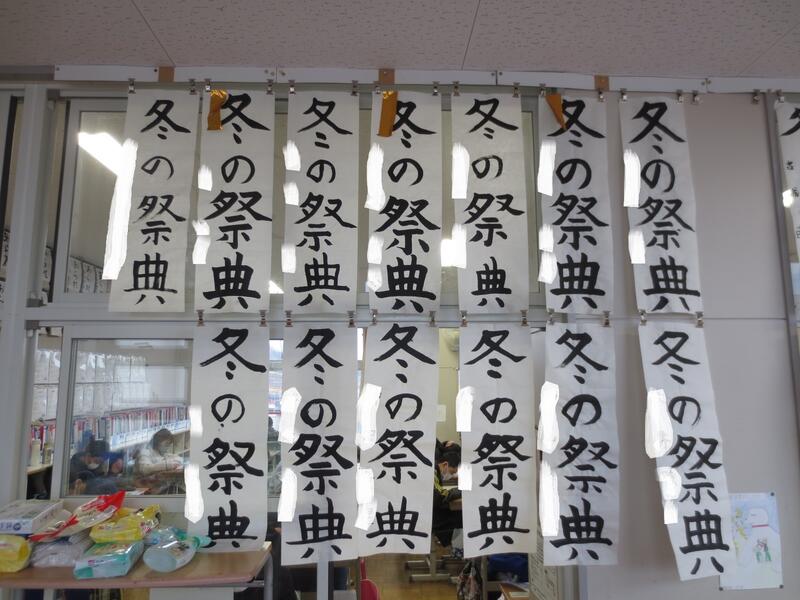 冬の祭典
冬の祭典
冬の祭典
冬の祭典
冬の祭典
冬の祭典
冬の祭典
冬の祭典
冬の祭典
冬の祭典
冬の祭典
冬の祭典
冬の祭典